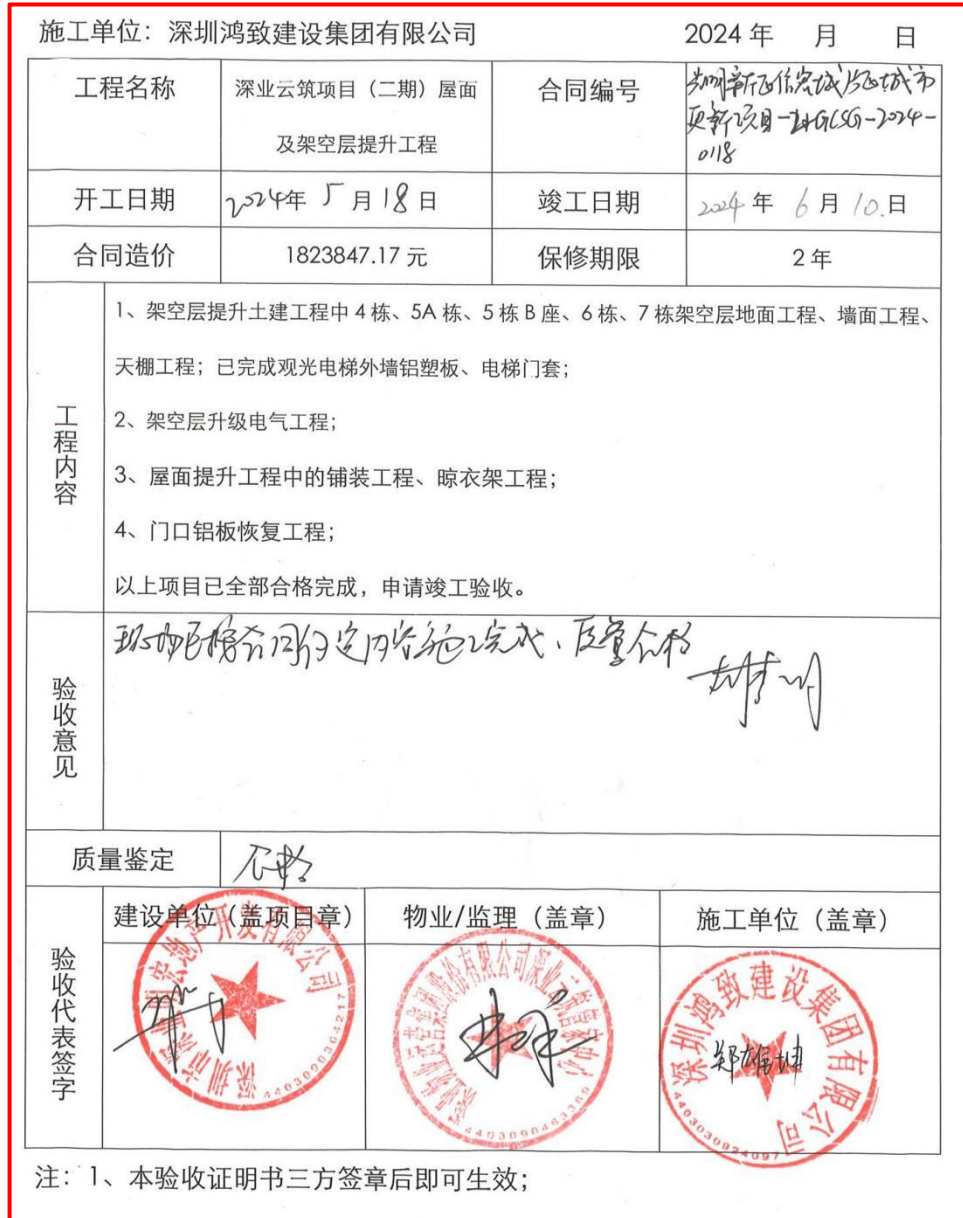 施工单位：深圳鸿致建设集团有限公司 2024 年 月 日
工程名称 深业云筑项目（二期）屋面及架空层提升工程 合同编号
更新项目-LHGCSG-2024-
0118
开工日期 2024年 5 月 18 日 竣工日期 2024 年 6 月 10.日
合同造价 1823847.17 元 保修期限 2 年
工程内容
1、架空层提升土建工程中 4 栋、5A 栋、5 栋 B 座、6 栋、7 栋架空层地面工程、墙面工程、
天棚工程；已完成观光电梯外墙铝塑板、电梯门套；
2、架空层升级电气工程；
3、屋面提升工程中的铺装工程、晾衣架工程；
4、门口铝板恢复工程；
以上项目已全部合格完成，申请竣工验收。
验收意见
现场已按合同约定内容施工完成、质量合格
质量鉴定 合格
验收代表签字
建设单位（盖项目章） 物业/监理（盖章） 施工单位（盖章）
深圳鸿致建设集团有限公司
郑雄坤
4403030924097
注：1、本验收证明书三方签章后即可生效；